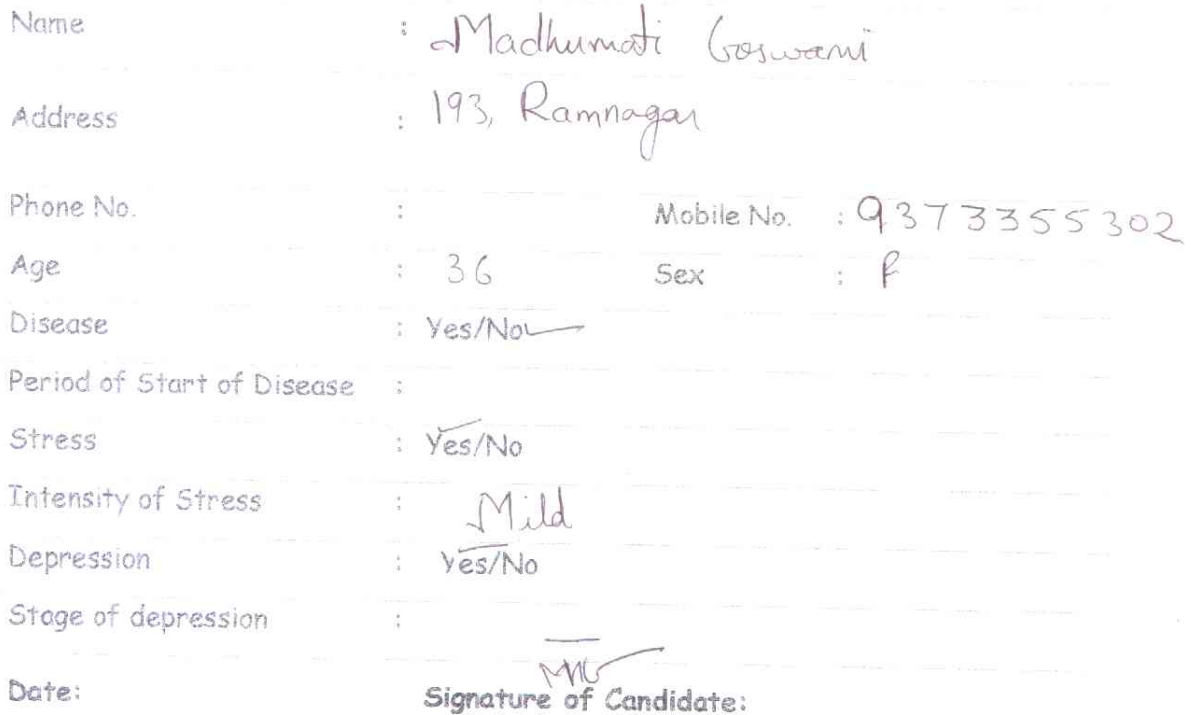 Name : Madhumati Goswami
Address : 193, Ramnagar
Phone No. : Mobile No. : 9373355302
Age : 36 Sex : F
Disease : Yes/No
Period of Start of Disease :
Stress : Yes/No
Intensity of Stress : Mild
Depression : Yes/No
Stage of depression :
Date: Signature of Candidate: